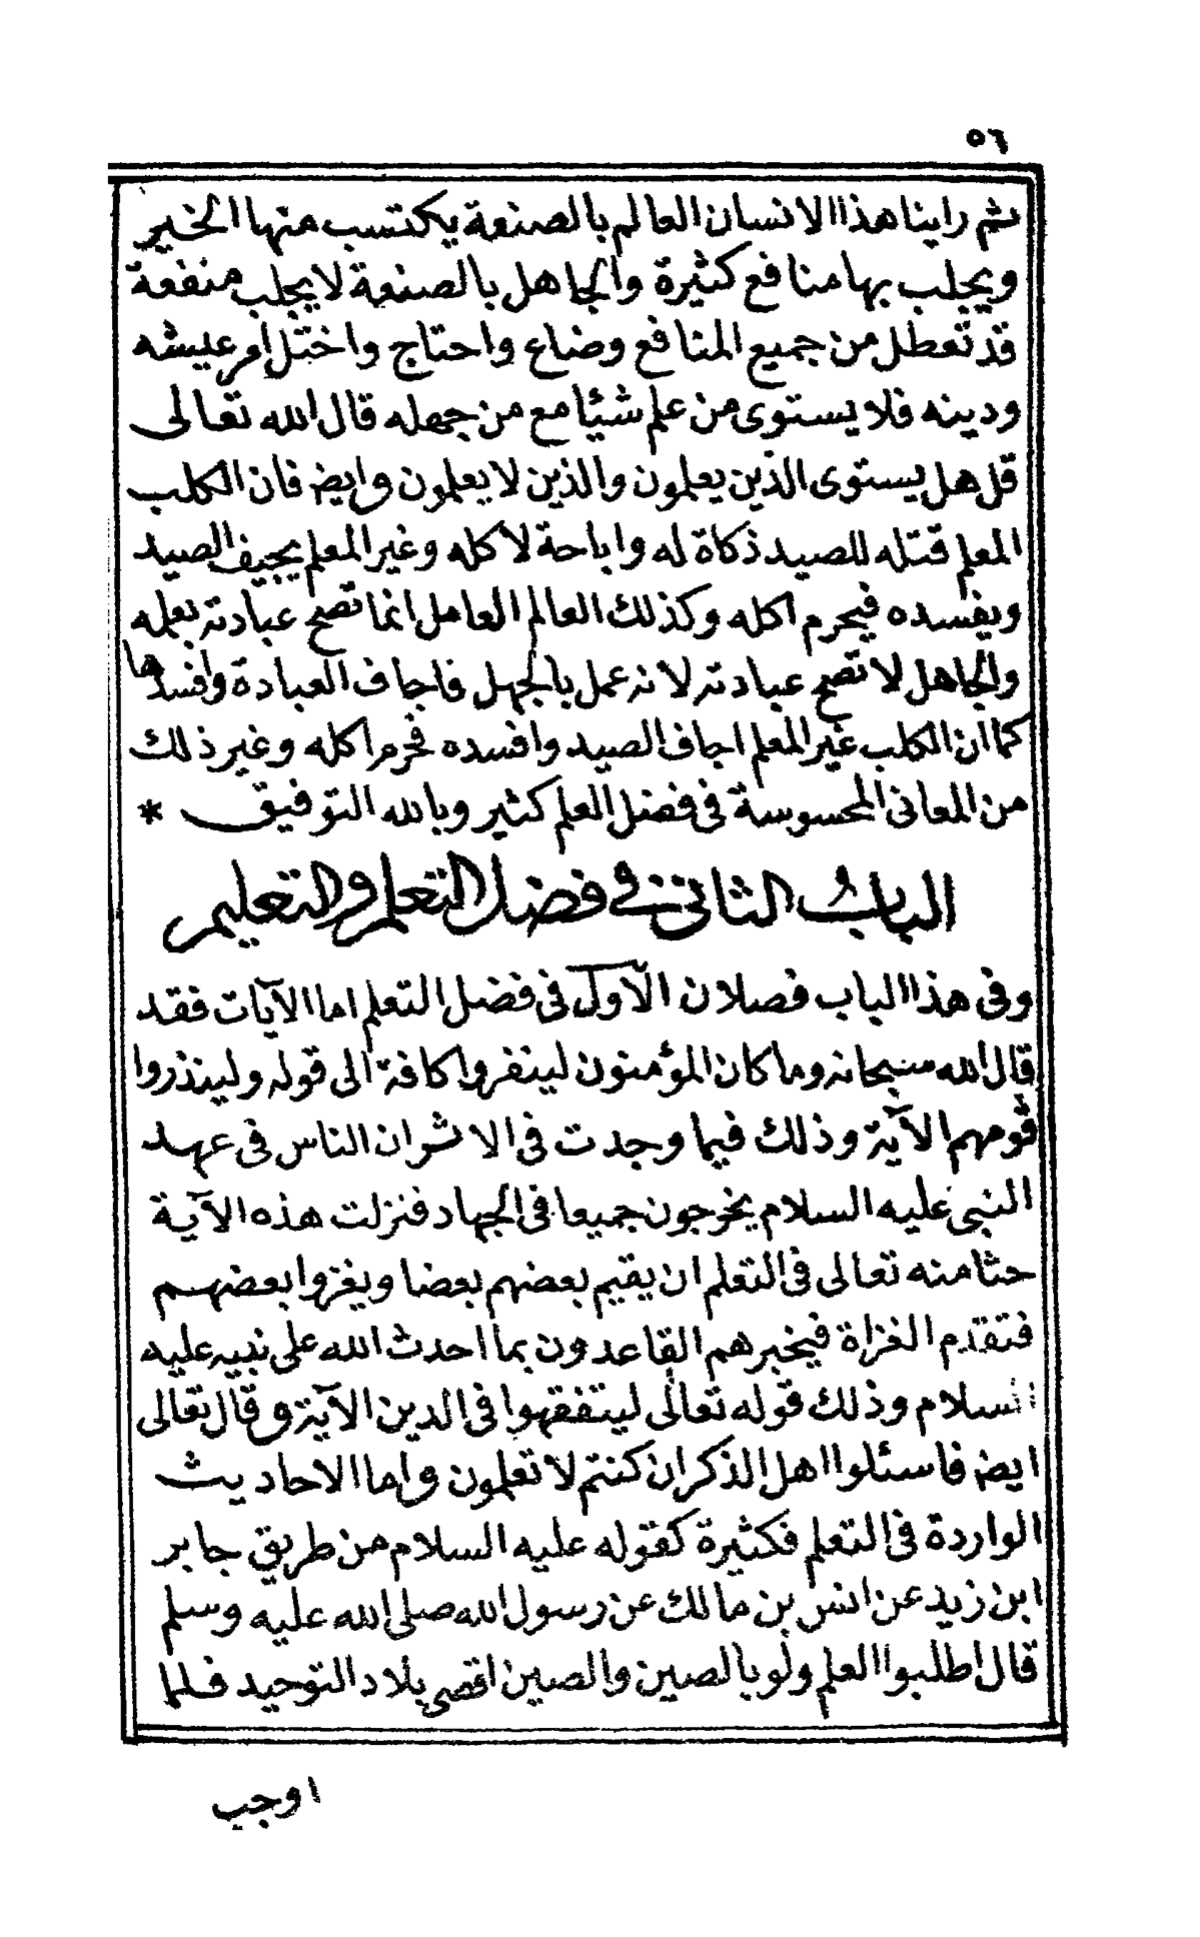 ٥٦
ثم راينا هذا الانسان العالم بالصنعة يكتسب منها الخير
ويجلب بها منافع كثيرة والجاهل بالصنعة لا يجلب منفعة
قد تعطل من جميع المنافع وضاع واحتاج واختل امر عيشه
ودينه فلا يستوى من علم شيئا مع من جهله قال الله تعالى
قل هل يستوى الذين يعلمون والذين لا يعلمون وايض فان الكلب
المعلم قتله للصيد ذكاة له واباحة لاكله وغير المعلم يجيف الصيد
ويفسده فيحرم اكله وكذلك العالم العامل انما تصح عبادته بعلمه
والجاهل لا تصح عبادته لانه عمل بالجهل فاجاف العبادة وافسدها
كما ان الكلب غير المعلم اجاف الصيد وافسده فحرم اكله وغير ذلك
من المعانى المحسوسة فى فضل العلم كثير وبالله التوفيق *
الباب الثانى فى فضل التعلم والتعليم
وفى هذا الباب فصلان الآول فى فضل التعلم اما الآيات فقد
قال الله سبحانه وما كان المؤمنون لينفروا كافة الى قوله ولينذروا
قومهم الآية وذلك فيما وجدت فى الاثر ان الناس فى عهد
النبى عليه السلام يخرجون جميعا فى الجهاد فنزلت هذه الآية
حثا منه تعالى فى التعلم ان يقيم بعضهم بعضا ويغزوا بعضهم
فتقدم الغزاة فيخبرهم القاعدون بما احدث الله على نبيه عليه
السلام وذلك قوله تعالى ليتفقهوا فى الدين الآية وقال تعالى
ايض فاسئلوا اهل الذكر ان كنتم لا تعلمون واما الاحاديث
الواردة فى التعلم فكثيرة كقوله عليه السلام من طريق جابر
ابن زيد عن انس بن مالك عن رسول الله صلى الله عليه وسلم
قال اطلبوا العلم ولو بالصين والصين اقصى بلاد التوحيد فلما
اوجب